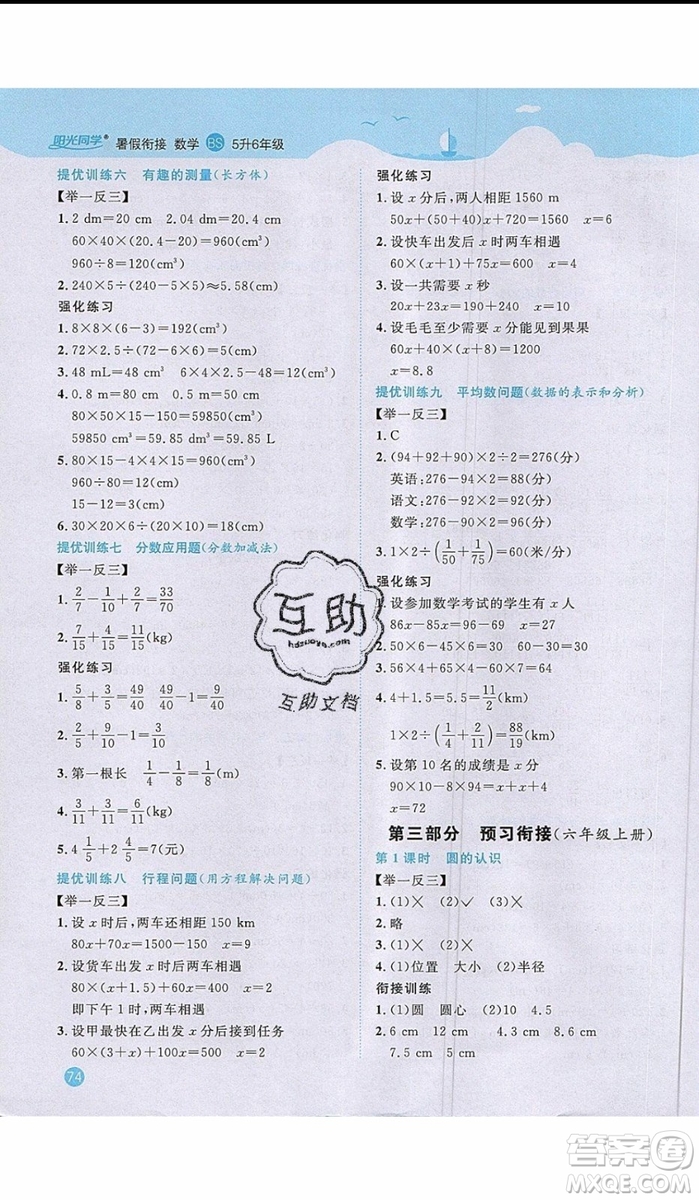 阳光同学® 暑假衔接 数学 BS 5升6年级
提优训练六 有趣的测量(长方体)
【举一反三】
1. 2 dm=20 cm 2.04 dm=20.4 cm
60×40×(20.4-20)=960(cm³)
960÷8=120(cm³)
2. 240×5÷(240-5-5)≈5.58(cm)
强化练习
1. 8×8×(6-3)=192(cm³)
2. 72×2.5÷(72-6×6)=5(cm)
3. 48 mL=48 cm³ 6×4×2.5-48=12(cm³)
4. 0.8 m=80 cm
80×50×15-150=59850(cm³)
59850 cm³=59.85 dm³=59.85 L
5. 80×15-4×4×15=960(cm³)
960÷80=12(cm)
15-12=3(cm)
6. 30×20×15÷(30×20-10×10)=18(cm)
提优训练七 分数应用题(分数加减法)
【举一反三】
1. 2/7-1/10+2/7=33/70
2. 7/15+4/15=11/15(kg)
强化练习
1. 5/8+3/5=49/40 49/40-9/10=13/40
2. 2/5+9/10-1=3/10
3. 第一根长 1/4-1/8=1/8(m)
4. 3/11+3/11+2/11=8/11(kg)
5. 4 3/5+2 2/5=7(元)
提优训练八 行程问题(用方程解决问题)
【举一反三】
1. 设 x 时后,两车还相距 150 km
80x+70x=1500-150 x=9
2. 设货车出发 x 时两车相遇
80×(x+1)+100x=440 x=2
即下午 1 时两车相遇
3. 设甲最快在乙出发 x 分后接到任务
60×(3+x)=80x x=9
74
强化练习
1. 设 x 分后,两人相距 1560 m
50x+(50+40)x+720=1560 x=6
2. 设快车出发后 x 时两车相遇
60×(x+1)+80x=620 x=4
3. 设一共需要 x 秒
20x+23x=190+240 x=10
4. 设毛毛至少需要 x 分能见到果果
80×(x-5)+50x+60x=1200
x=8.8
提优训练九 平均数问题(数据的表示和分析)
【举一反三】
1. C
2. (94+92+90)×2÷2=276(分)
英语:276-94×2=88(分)
语文:276-92×2=92(分)
数学:276-90×2=96(分)
3. 1×2÷(1/50+1/75)=60(米/分)
强化练习
1. 设参加数学考试的学生有 x 人
86x-85x=98-89 x=9
2. 50×6-45×6=30 60-30=30
3. 56×6-4×60÷2-60×4÷2=96... 
4. 4+1.5=5.5=11/2(km)
1×2÷(1/4+2/11)=88/19(km)
5. 设第 10 名的成绩是 x 分
90×10-80×9=x+x+36
x=72
第三部分 预习衔接(六年级上册)
第1课时 圆的认识
【举一反三】
1. (1)× (2)✓ (3)×
2. 略
3. (1)位置 大小 (2)半径
衔接训练
1. (1)圆 圆心 (2)10 4.5
2. 6 cm 12 cm 4 cm 8 cm
7.5 cm 5 cm
互助
hdzuoye.com
互助文档
答案圈
MXQE.COM